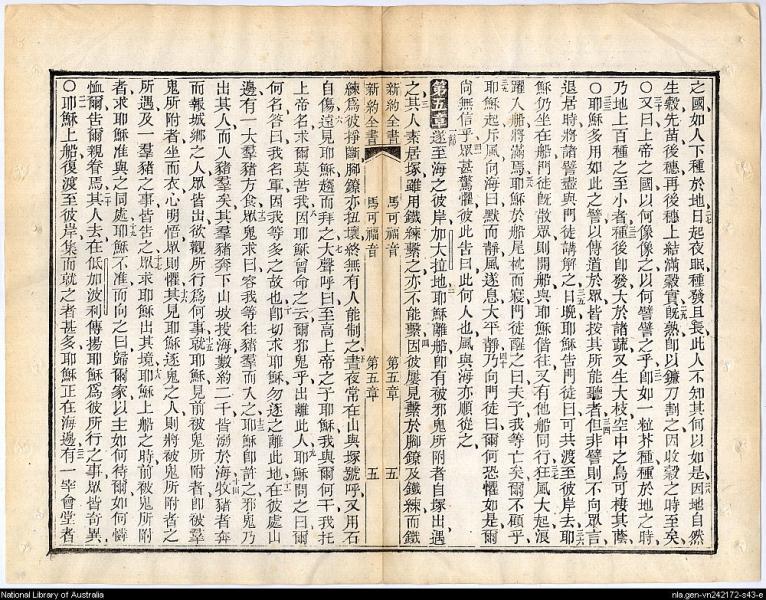 之國如人下種於地日起夜眠種發且長此人不知其何以如是因地自然
生穀先苗後穗再後穗上結滿穀實既熟即以鐮刀割之因收穀之時至矣
○又曰上帝之國以何像像之以何譬譬之乎即如一粒芥種種於地之時
乃地上百種之至小者種後即發大於諸蔬又生大枝空中之鳥可棲其蔭
○耶穌多用如此之譬以傳道於眾皆按其所能聽者但非譬則不向眾言
退居時將諸譬盡與門徒講解之日晚耶穌告門徒曰可共渡至彼岸去耶
穌仍坐在船門徒既散眾則開船與耶穌偕往又有他船同行狂風大起浪
躍入船將滿焉耶穌於船尾枕而寢門徒醒之曰夫子我等亡矣爾不顧乎
耶穌起斥風向海曰默而靜風遂息大平靜乃向門徒曰爾何恐懼如是爾
尚無信乎眾甚驚懼彼此告曰此何人也風與海亦順從之
第五章遂至海之彼岸加大拉地耶穌離船即有被邪鬼所附者自塚出遇
之其人素居塚雖用鐵練繫之亦不能繫因彼屢見繫於腳鐐及鐵練而鐵
新約全書 馬可福音 第五章 五
新約全書 馬可福音 第五章 五
練為彼掙斷腳鐐亦扭壞終無有人能制之晝夜常在山與塚號呼又用石
自傷遠見耶穌趨而拜之大聲呼曰至高上帝之子耶穌我與爾何干我托
上帝名求爾莫苦我因耶穌曾命之云爾邪鬼乎出離此人耶穌問之曰爾
何名答曰我名軍因我等多之故也即切求耶穌勿逐之離此地在彼處山
邊有一大羣豬方食眾鬼求曰容我等往豬羣而入之耶穌即許之邪鬼乃
出其人而入豬羣矣其羣豬奔下山坡投海數約二千皆溺於海收豬者奔
而報城鄉之人眾皆出欲觀所行為何事就耶穌見前被鬼所附者即被羣
鬼所附者坐而衣心明悟眾則懼其見耶穌逐鬼之人則將被鬼所附者之
所遇及一羣豬之事皆告之眾求耶穌出其境耶穌上船之時前被鬼所附
者求耶穌准與之同處耶穌不准而向之曰歸爾家以主如何待爾如何憐
恤爾告爾親眷焉其人去在低加波利傳揚耶穌為彼所行之事眾皆奇異
○耶穌上船復渡至彼岸集而就之者甚多耶穌正在海邊有一宰會堂者
National Library of Australia
nla.gen-vn242172-s43-e